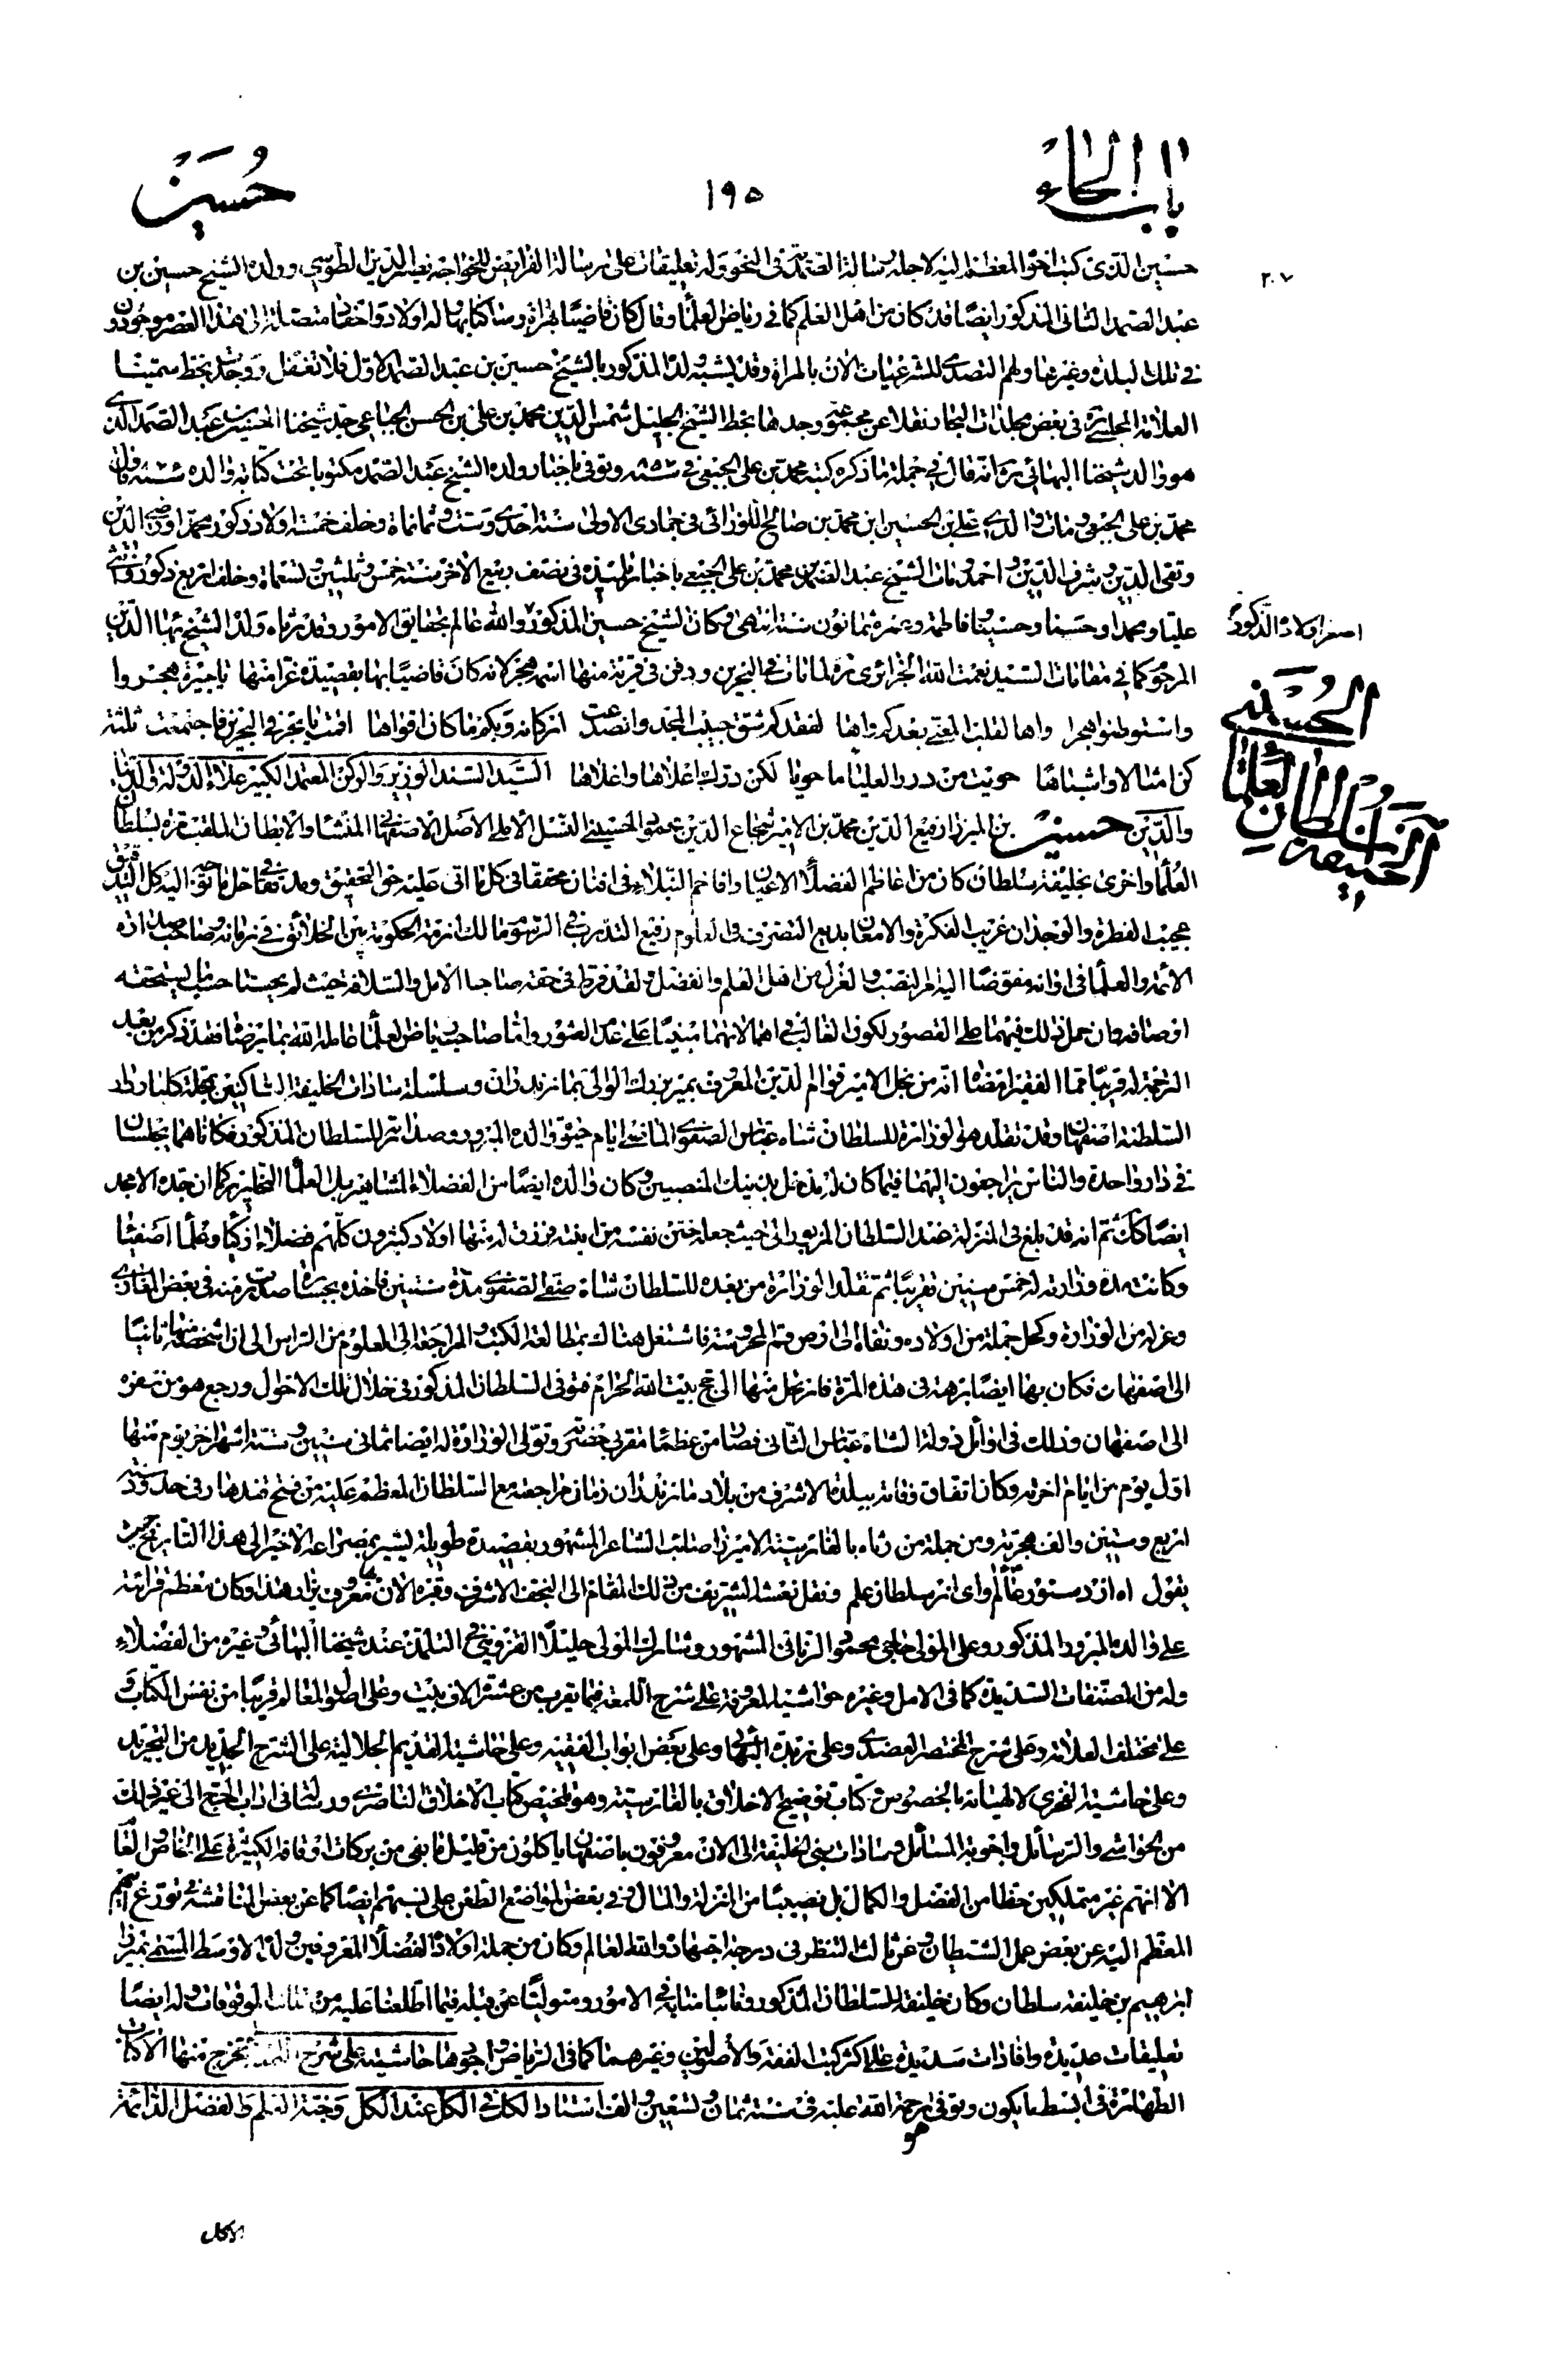 باب الحاء
١٩٥
حسين
٢٠٧
حسين الذى كتب اخوه المعظم اليه لاجله رسالة الصمدية فى النحو وله تعليقات على رسالة الفرايض للخواجه نصير الدين الطوسي وولده الشيخ حسين بن
عبد الصمد الثانى المذكور ايضا قد كان من اهل العلم كما فى رياض العلما وقال كان قاضيا بهراة وساكنا بها وله اولاد واحفاد متصلة الى هذا العصر موجودون
فى تلك البلدة وغيرها ولهم التصدى للشرعيات الان بالهراة وقد يشبه ولده المذكور بالشيخ حسين بن عبد الصمد الاول فلا تغفل ووجدت بخط سمينا
العلامة المجلسى ره فى بعض مجلدات البحار نقلا عن مجموعة وجدها بخط الشيخ الجليل شمس الدين محمد بن على بن الحسن الجباعى جد شيخنا الحسين بن عبد الصمد الذى
هو والد شيخنا البهائى ره انه قال فى جملة ما ذكره كتبه محمد بن على الجبعى فى سنة وتوفى باخبار ولده الشيخ عبد الصمد مكتوبا تحت كتابة والده سنة وقال
محمد بن على الجبعى ومات والدى على بن الحسين ابن محمد بن صالح اللوزانى فى جمادى الاولى سنة احدى وستين وثمانماة وخلف خمسة اولاد ذكور محمد او رضى الدين
وتقى الدين وشرف الدين واحمد ومات الشيخ عبد الصمد بن محمد بن على الجبعى باخبار تلميذه فى نصف ربيع الاخر سنة خمس وثلثين وتسعماة وخلف اربع ذكور وانثى
عليا ومحمدا وحسنا وحسينا وفاطمة وعمره ثمانون سنة انتهى وكان الشيخ حسين المذكور والله عالم بحقايق الامور وقد رثاه ولده الشيخ بهاء الدين
اصغر اولاده الذكور
المرجو كما فى مقامات السيد نعمت الله الجزائرى ره لما مات فى البحرين ودفن فى قرية منها اسمه هجر لانه كان قاضيا بها بقصيدة غرا منها يا جيرة هجروا
واستوطنوا هجرا واها لقلبى المعنى بعدكم واها لفقدكم شق جيب المجد وانصدعت اركانه وبكم ما كان اقواها اقمت يا بحر فى البحرين فاجتمعت ثلثة
كن امثالا واشباها حويت من درر العليا ما حويا لكن درك اعلاها واغلاها السيد السند الوزير والركن العتمد الكبير علاء الدولة والدنيا
والدين حسين بن الميرزا رفيع الدين محمد بن الامير شجاع الدين محمود الحسينى النسل الاملى الاصل الاصفهانى المنشا والابطان الملقب تارة بسلطان
الحسينى
سلطان العلما
خليفه
العلما واخرى بخليفة سلطان كان من اعاظم الفضلاء الاعيان وافاخم النبلاء فى افنان محققا فى كل ما اتى عليه حق التحقيق
عجيب الفطرة والوجدان غريب الفكرة والامعان بديع التصرف فى العلوم رفيع التدرب فى الرسوم مالك ازمة الحكومة بين الخلائق فى زمانه وصاحب صدارة
الائمة والعلما فى اوانه مفوضا اليه امر النصب والعزل من اهل العلم والفضل ولقد فرط فى حقه صاحبا الامل والسلافة حيث لم يحسنا حساب ما يستحقه
اوصافه وان حمل ذلك فيهما على القصور لكون الغالب فى اهمالاتهما مبنيا على عدم العثور واما صاحب رياض العلما عامله الله بما يرضا فقد ذكر من بعيد
الترجمة له قريبا مما الفقير امضاه انه من نجل الامير قوام الدين المعروف بمير بزرك الوالى بمازندران وسلسلة سادات الخليفة الساكنين بمحلة كلبار دار
السلطنة اصفهان وقد تقلد هو الوزارة للسلطان شاه عباس الصفوى الماضى ايام حيوة والده المبرور وصدارته للسلطان المذكور فكانا هما يجلسان
فى دار واحدة والناس يراجعون اليهما فيما كان له مدخل بذينك المنصبين وكان والده ايضا من الفضلاء المشاهير بل العلما النحارير كما ان جده الامجد
ايضا كان ثم انه قد بلغ فى المنزلة عند السلطان المزبور الى حيث جعله ختن نفسه من ابنته فرزق له منها اولاد كثيرون كلهم فضلاء ازكيا وعلما اصفيا
وكانت مدة وزارته له خمس سنين تقريبا ثم تقلد الوزارة من بعده للسلطان شاه صفى الصفوى مدة سنتين فاخذه بجسارة صدرت منه فى بعض المغازى
وعزله من الوزارة وكحل جملة من اولاده ونفاه الى ارض قم المحروسة فاشتغل هناك بمطالعة الكتب والمراجعة الى العلوم من الراس الى ان شخصه منها ثانيا
الى اصفهان فكان بها ايضا برهة فى هذه المرة فارتحل منها الى حج بيت الله الحرام فتوفى السلطان المذكور فى خلال تلك الاحوال ورجع هو من سفره
الى اصفهان وذلك فى اوائل دولة الشاه عباس الثانى فصار من عظماء مقربى حضرته وتولى الوزارة له ايضا ثمانى سنين وستة اشهر اخر يوم منها
اول يوم من ايام اخرته وكان اتفاق وفاته ببلدة الاشرف من بلاد مازندران زمان مراجعته مع السلطان المعظم عليه من فتح قندهار فى حدود سنة
اربع وستين والف هجرية ومن جملة من رثاه بالفارسية الاميرزا صائب الشاعر المشهور بقصيدة طويلة يشير بمصراعه الاخير الى هذا التاريخ حيث
يقول اه از دستور عالم واى از سلطان علم ونقل نعشه الشريف من ذلك المقام الى النجف الاشرف وقبره الان بها معروف يزار هذا وكان معظم قرائته
على والده المبرور المذكور وعلى المولى حاجى محمود الزنانى المشهور وشارك المولى خليلا القزوينى فى التلمذ عند شيخنا البهائى وغيره من الفضلاء
وله من المصنفات السديدة كما فى الامل وغيره حواشيه المعروفة على شرح اللمعة فيما يقرب من عشرة الاف بيت وعلى اصول المعالم قريبا من نفس الكتاب و
على مختلف العلامة وعلى شرح المختصر العضدى وعلى زبدة البهائى وعلى بعض ابواب الفقيه وعلى حاشية القديم الجلالية على الشرح الجديد من التجريد
وعلى حاشية الفخرى لالهياته بالخصوص ثم كتاب توضيح الاخلاق بالفارسية وهو تلخيص كتاب الاخلاق الناصرى ورسالة فى اداب الحج الى غير ذلك
من الحواشى والرسائل واجوبة المسائل وسادات بنى الخليفة الى الان معروفون باصفهان ياكلون من قليل ما بقى من بركات اوقافه الكثيرة على الخاص والعام
الا انهم غير متملكين حظا من الفضل والكمال بل نصيبا من المنزلة والمال وفى بعض المواضع الطعن على نسبهم ايضا كما عن بعض المناقشة فى تورع اسمهم
المعظم اليه عن بعض عمل الشيطان وعن مالك النظر فى درجة اجتهاده والله العالم وكان من جملة اولاده الفضلا المعروفين ولده الاوسط المسمى بميرزا
ابرهيم بن خليفه سلطان وكان خليفة للسلطان المذكور ونائبا منابه فى الامور ومتوليا عن قبله فيما اطلعنا عليه من الموقوفات وله ايضا
تعليقات عديدة وافادات سديدة على اكثر كتب الفقه والاصولين وغيرهما كما فى الرياض واجودها حاشيته على شرح اللمعة لم يخرج منها الا كتاب
الطهارة فى ابسط ما يكون وتوفى رحمة الله عليه فى سنة ثمان وتسعين والف استاد الكل فى الكل عند الكل وجنة العلم والفضل الدائمة
هو
الاكل